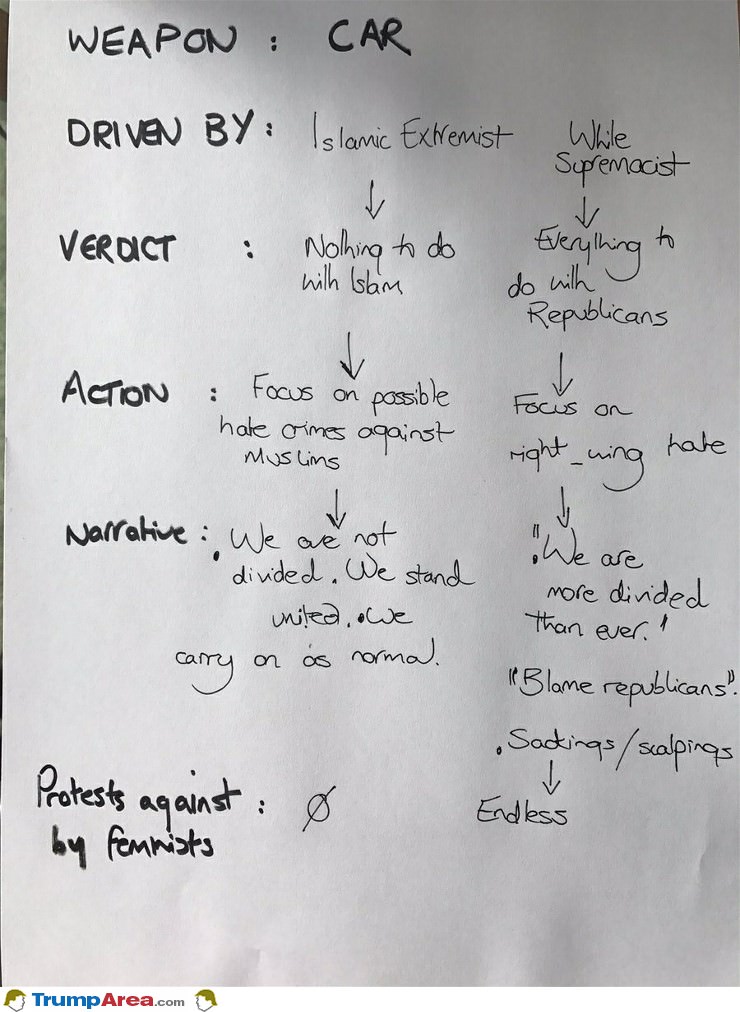 WEAPON : CAR
DRIVEN BY : Islamic Extremist
White
Supremacist
VERDICT : Nothing to do
with Islam
Everything to
do with
Republicans
ACTION : Focus on possible
hate crimes against
Muslims
Focus on
right_wing hate
Narrative : . We are not
divided. We stand
united. . We
carry on as normal.
". We are
more divided
than ever."
"Blame republicans".
. Sackings/scalpings
Protests against :
by feminists
Ø
Endless
TrumpArea.com